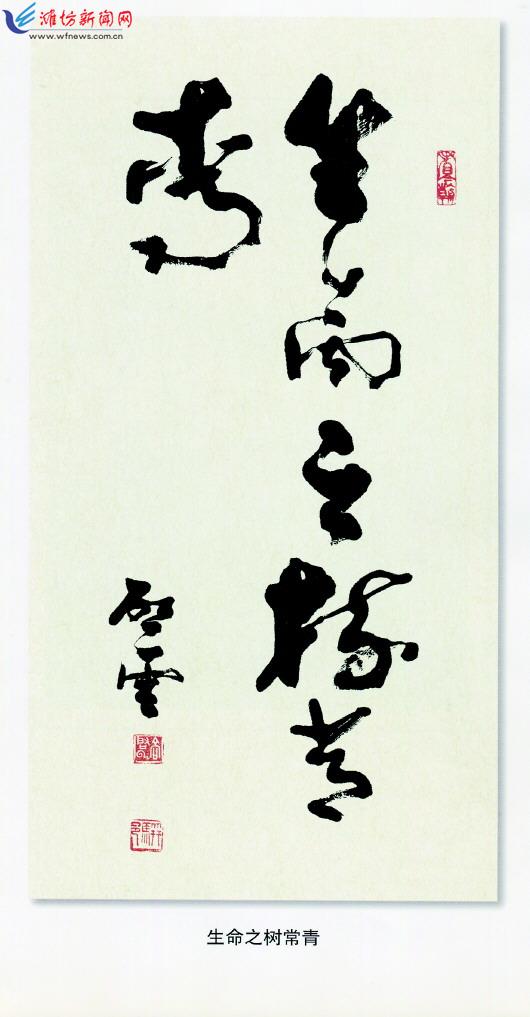 潍坊新闻网
www.wfnews.com.cn
生命之树常
青
生命之树常青